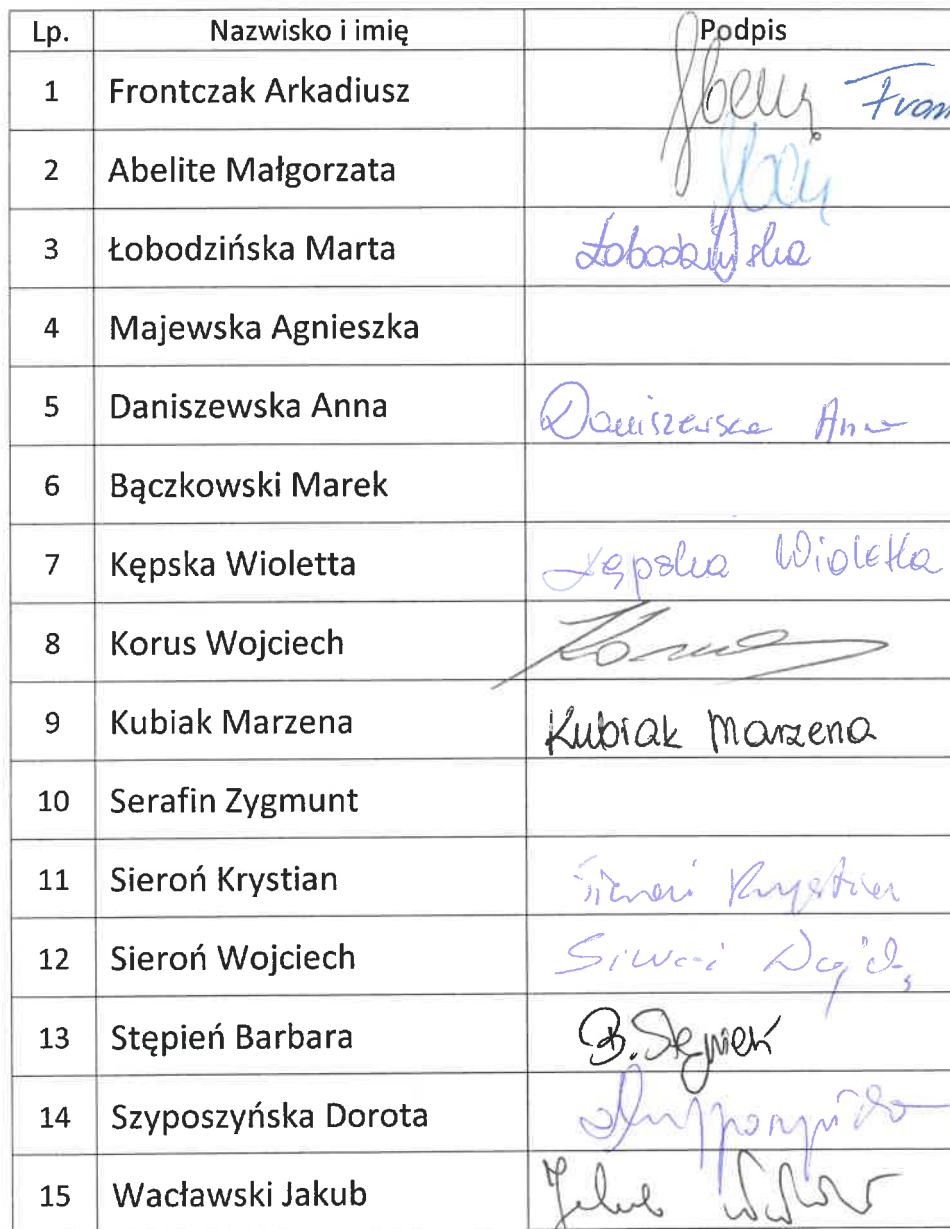 Lp. Nazwisko i imię Podpis
1 Frontczak Arkadiusz
2 Abelite Małgorzata
3 Łobodzińska Marta Łobodzińska
4 Majewska Agnieszka
5 Daniszewska Anna Daniszewska Anna
6 Bączkowski Marek
7 Kępska Wioletta Kępska Wioletta
8 Korus Wojciech Korus
9 Kubiak Marzena Kubiak Marzena
10 Serafin Zygmunt
11 Sieroń Krystian Sieroń Krystian
12 Sieroń Wojciech
13 Stępień Barbara B. Stępień
14 Szyposzyńska Dorota
15 Wacławski Jakub Jakub